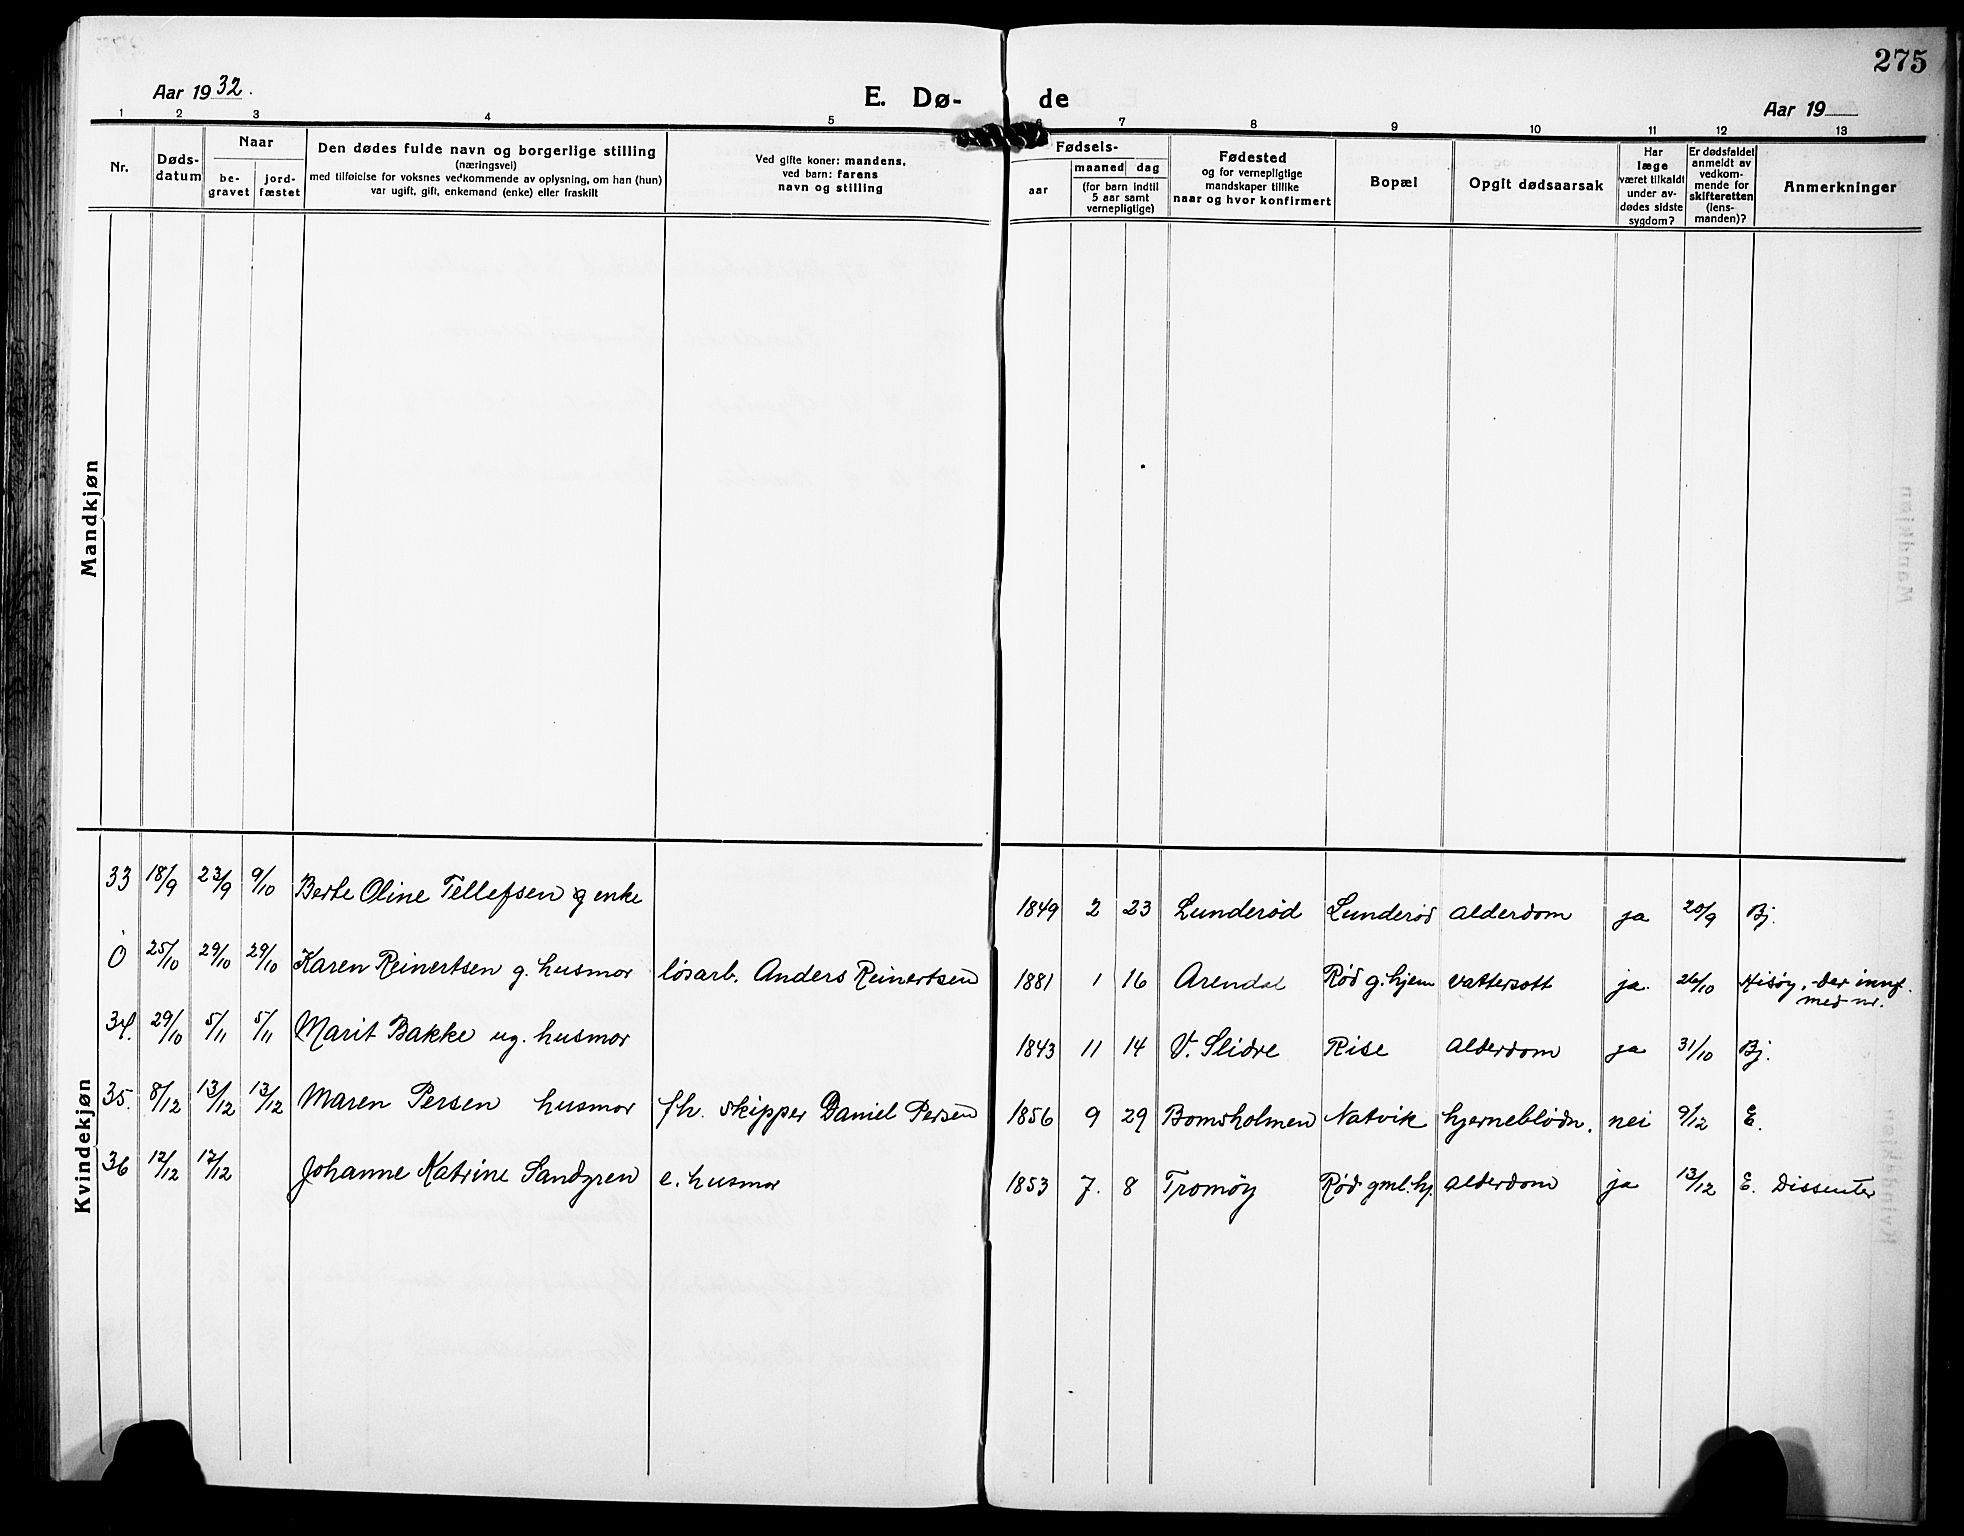 275
Aar 1932.
E. Dø- de
Aar 19
1 2 3 4 5 6 7 8 9 10 11 12 13
Nr.
Døds-
datum
Naar
be-
gravet
jord-
fæstet
Den dødes fulde navn og borgerlige stilling
(næringsvei)
med tilføielse for voksnes vedkommende av oplysning, om han (hun)
var ugift, gift, enkemand (enke) eller fraskilt
Ved gifte koner: mandens,
ved barn: farens
navn og stilling
Fødsels-
aar
maaned dag
(for barn indtil
5 aar samt
vernepligtige)
Fødested
og for vernepligtige
mandskaper tillike
naar og hvor konfirmert
Bopæl
Opgit dødsaarsak
Har
læge
været tilkaldt
under av-
dødes sidste
sygdom?
Er dødsfaldet
anmeldt av
vedkom-
mende for
skifteretten
(lens-
manden)?
Anmerkninger
Mandkjøn
Kvindekjøn
33 18/9 23/9 9/10 Berte Oline Tellefsen enke 1849 2 23 Lunderød Lunderød alderdom ja 20/9 Bj.
0 25/10 29/10 29/10 Karen Reinertsen g. husmor løsarb. Anders Reinertsen 1881 1 16 Arendal Rød g.hjem vattersott ja. 26/10 Hisøy, der innf.
med nr.
34. 29/10 5/11 5/11 Marit Bakke ug. husmor 1843 11 14 V. Slidre Rise alderdom ja 31/10 Bj.
35. 8/12 13/12 13/12 Maren Persen husmor fh. skipper Daniel Persen 1856 9 29 Bomsholmen Natvik hjerneblødn. nei 9/12 E.
36 12/12 17/12 Johanne Katrine Sandgren e. husmor 1853 7. 8 Tromøy Rød gml.hj. alderdom ja 13/12 E. Dissenter